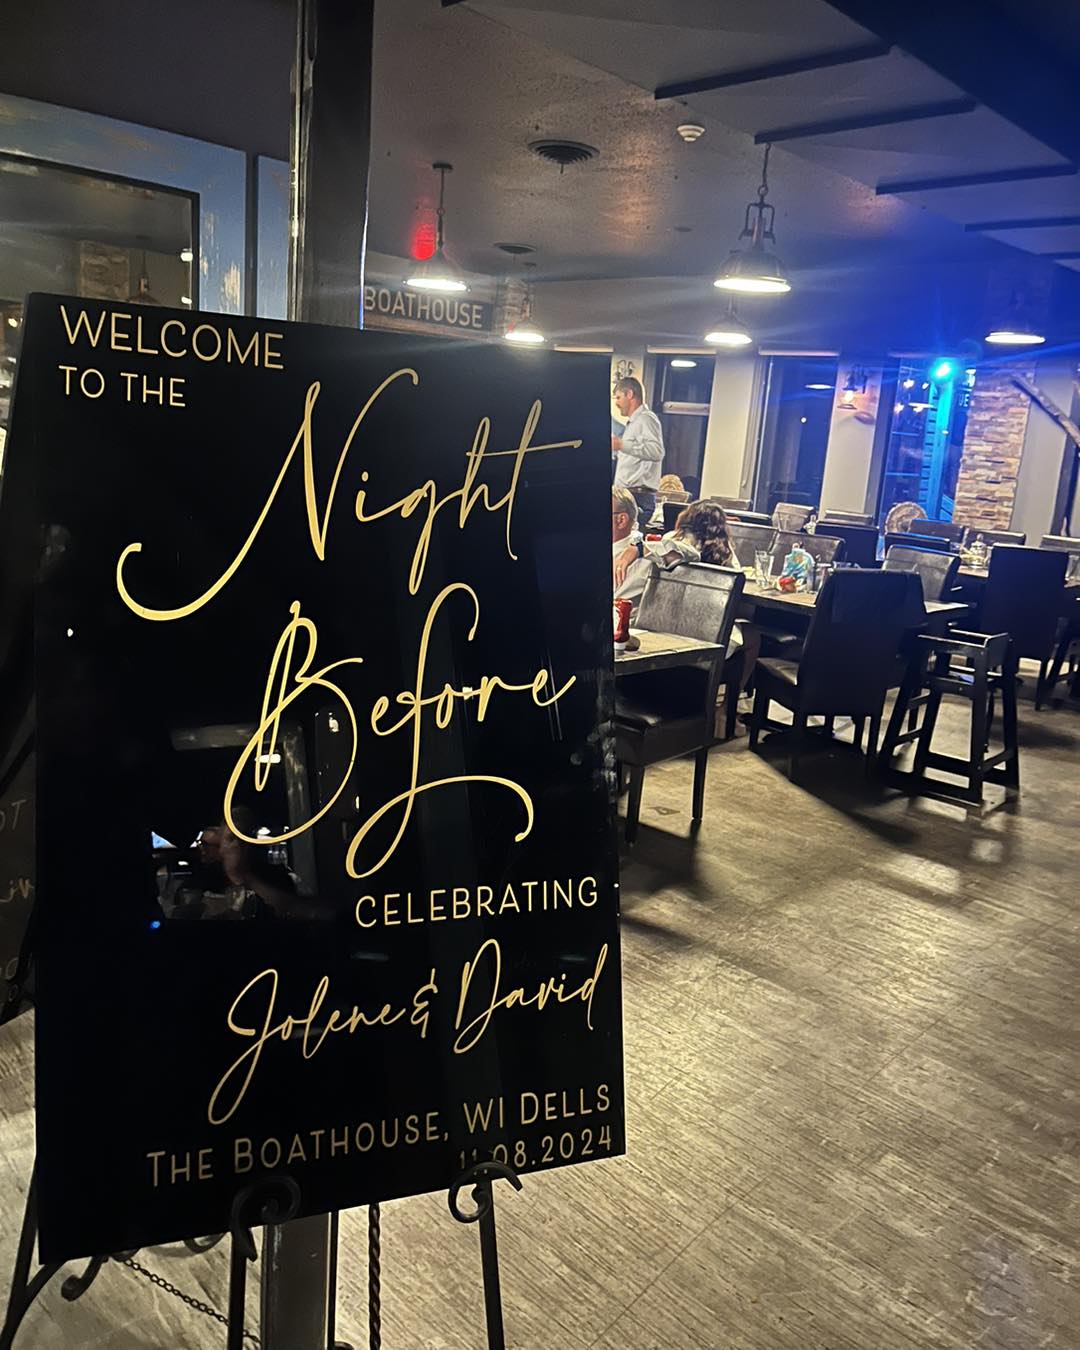 WELCOME
TO THE
Night
Before
CELEBRATING
Jolene & David
THE BOATHOUSE, WI DELLS
11.08.2024
BOATHOUSE